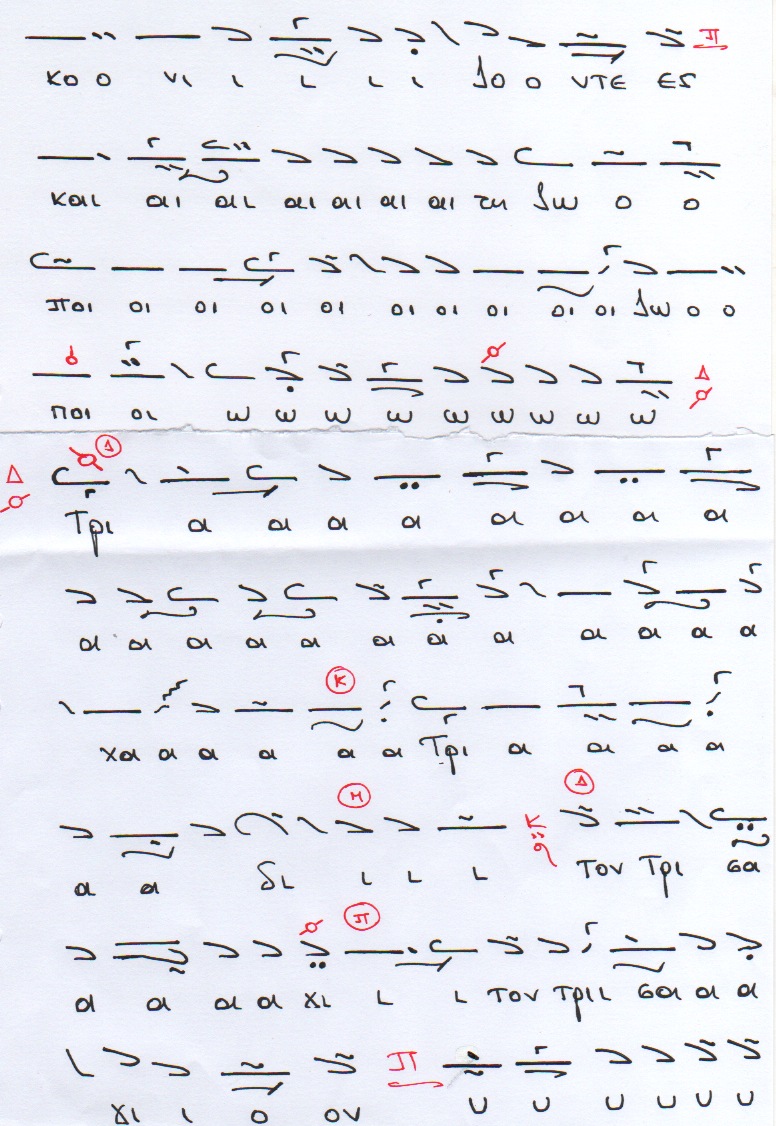 κο ο νι ι ι ι ι δο ο ντε ες
και αι αι αι αι αι αι τη δω ο ο
ποι οι οι οι οι οι οι οι οι οι δω ο ο
ποι οι ω ω ω ω ω ω ω ω ω
Τρι α α α α α α α α
α α α α α α α α α α α α
χα α α α α α Τρι α α α α
α α δι ι ι ι τον Τρι σα
α α α α χι ι ι τον Τριι σα α α
χι ι ο ον υ υ υ υ υ υ